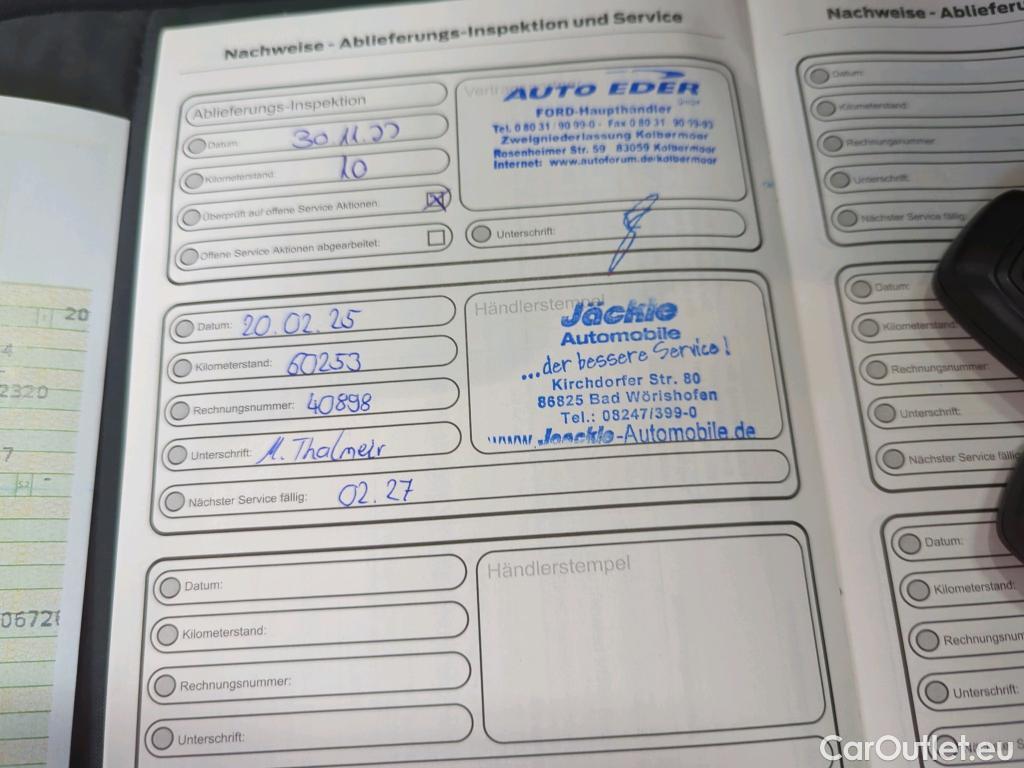 Nachweise - Ablieferungs-Inspektion und Service
Ablieferungs-Inspektion
Datum: 30.11.22
Kilometerstand: 10
Überprüft auf offene Service Aktionen:
Offene Service Aktionen abgearbeitet:
AUTO EDER
FORD-Haupthändler
Tel. 0 80 31 / 90 99-0 - Fax 0 80 31 90 99-93
Zweigniederlassung Kolbermoor
Rosenheimer Str. 59 83059 Kolbermoor
Internet: www.autoforum.de/kolbermoor
Unterschrift:
Datum: 20.02.25
Kilometerstand: 60253
Rechnungsnummer: 40898
Unterschrift: M. Thalmeir
Nächster Service fällig: 02.27
Händlerstempel
Jäckle
Automobile
...der bessere Service!
Kirchdorfer Str. 80
86825 Bad Wörishofen
Tel.: 08247/399-0
www.Jaeckle-Automobile.de
Datum:
Kilometerstand:
Rechnungsnummer:
Unterschrift:
Händlerstempel
Nachweise - Ablieferu
Datum:
Kilometerstand:
Rechnungsnummer
Unterschrift:
Nächster Service fällig:
Datum:
Kilometerstand:
Rechnungsnummer:
Unterschrift:
Nächster Service fällig
Datum:
Kilometerstand:
Rechnungsnum
Unterschrift:
20
4
2320
7
5.2
06726
CarOutlet.eu